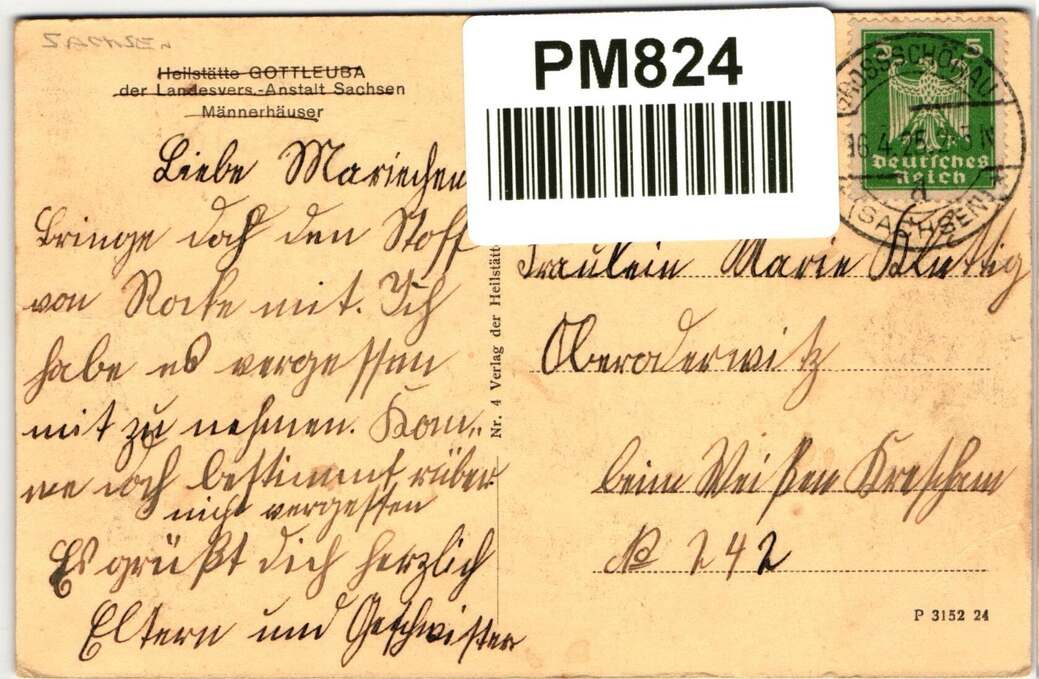 SACHSEN
Heilstätte GOTTLEUBA
der Landesvers.-Anstalt Sachsen
Männerhäuser
Liebe Mariechen
bringe doch den Stoff
von Rocke mit. Ich
habe es vergessen
mit zu nehmen. Kom„
me doch bestimmt rüber
nicht vergessen
Es grüßt dich herzlich
Eltern und Geschwister
Nr. 4 Verlag der Heilstätte
PM824
5 5
Deutsches
Reich
GROSSSCHÖNAU
16.4.25.
(SACHSEN)
Fräulein Marie Kluttig
Oberoderwitz
beim Weißen Kretscham
No 242
P 3152 24